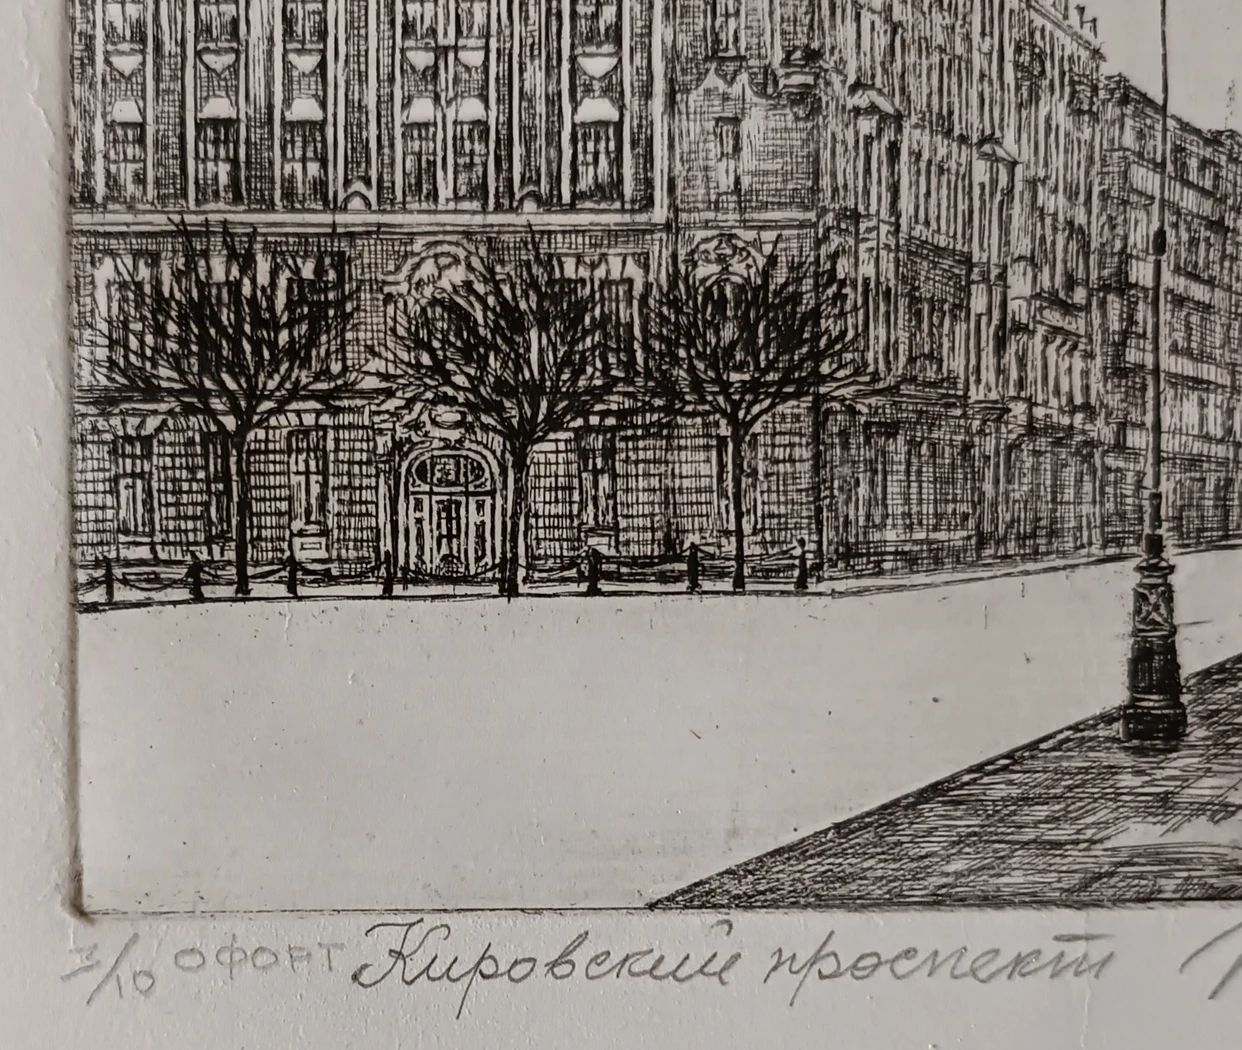 3/10 офорт Кировский проспект